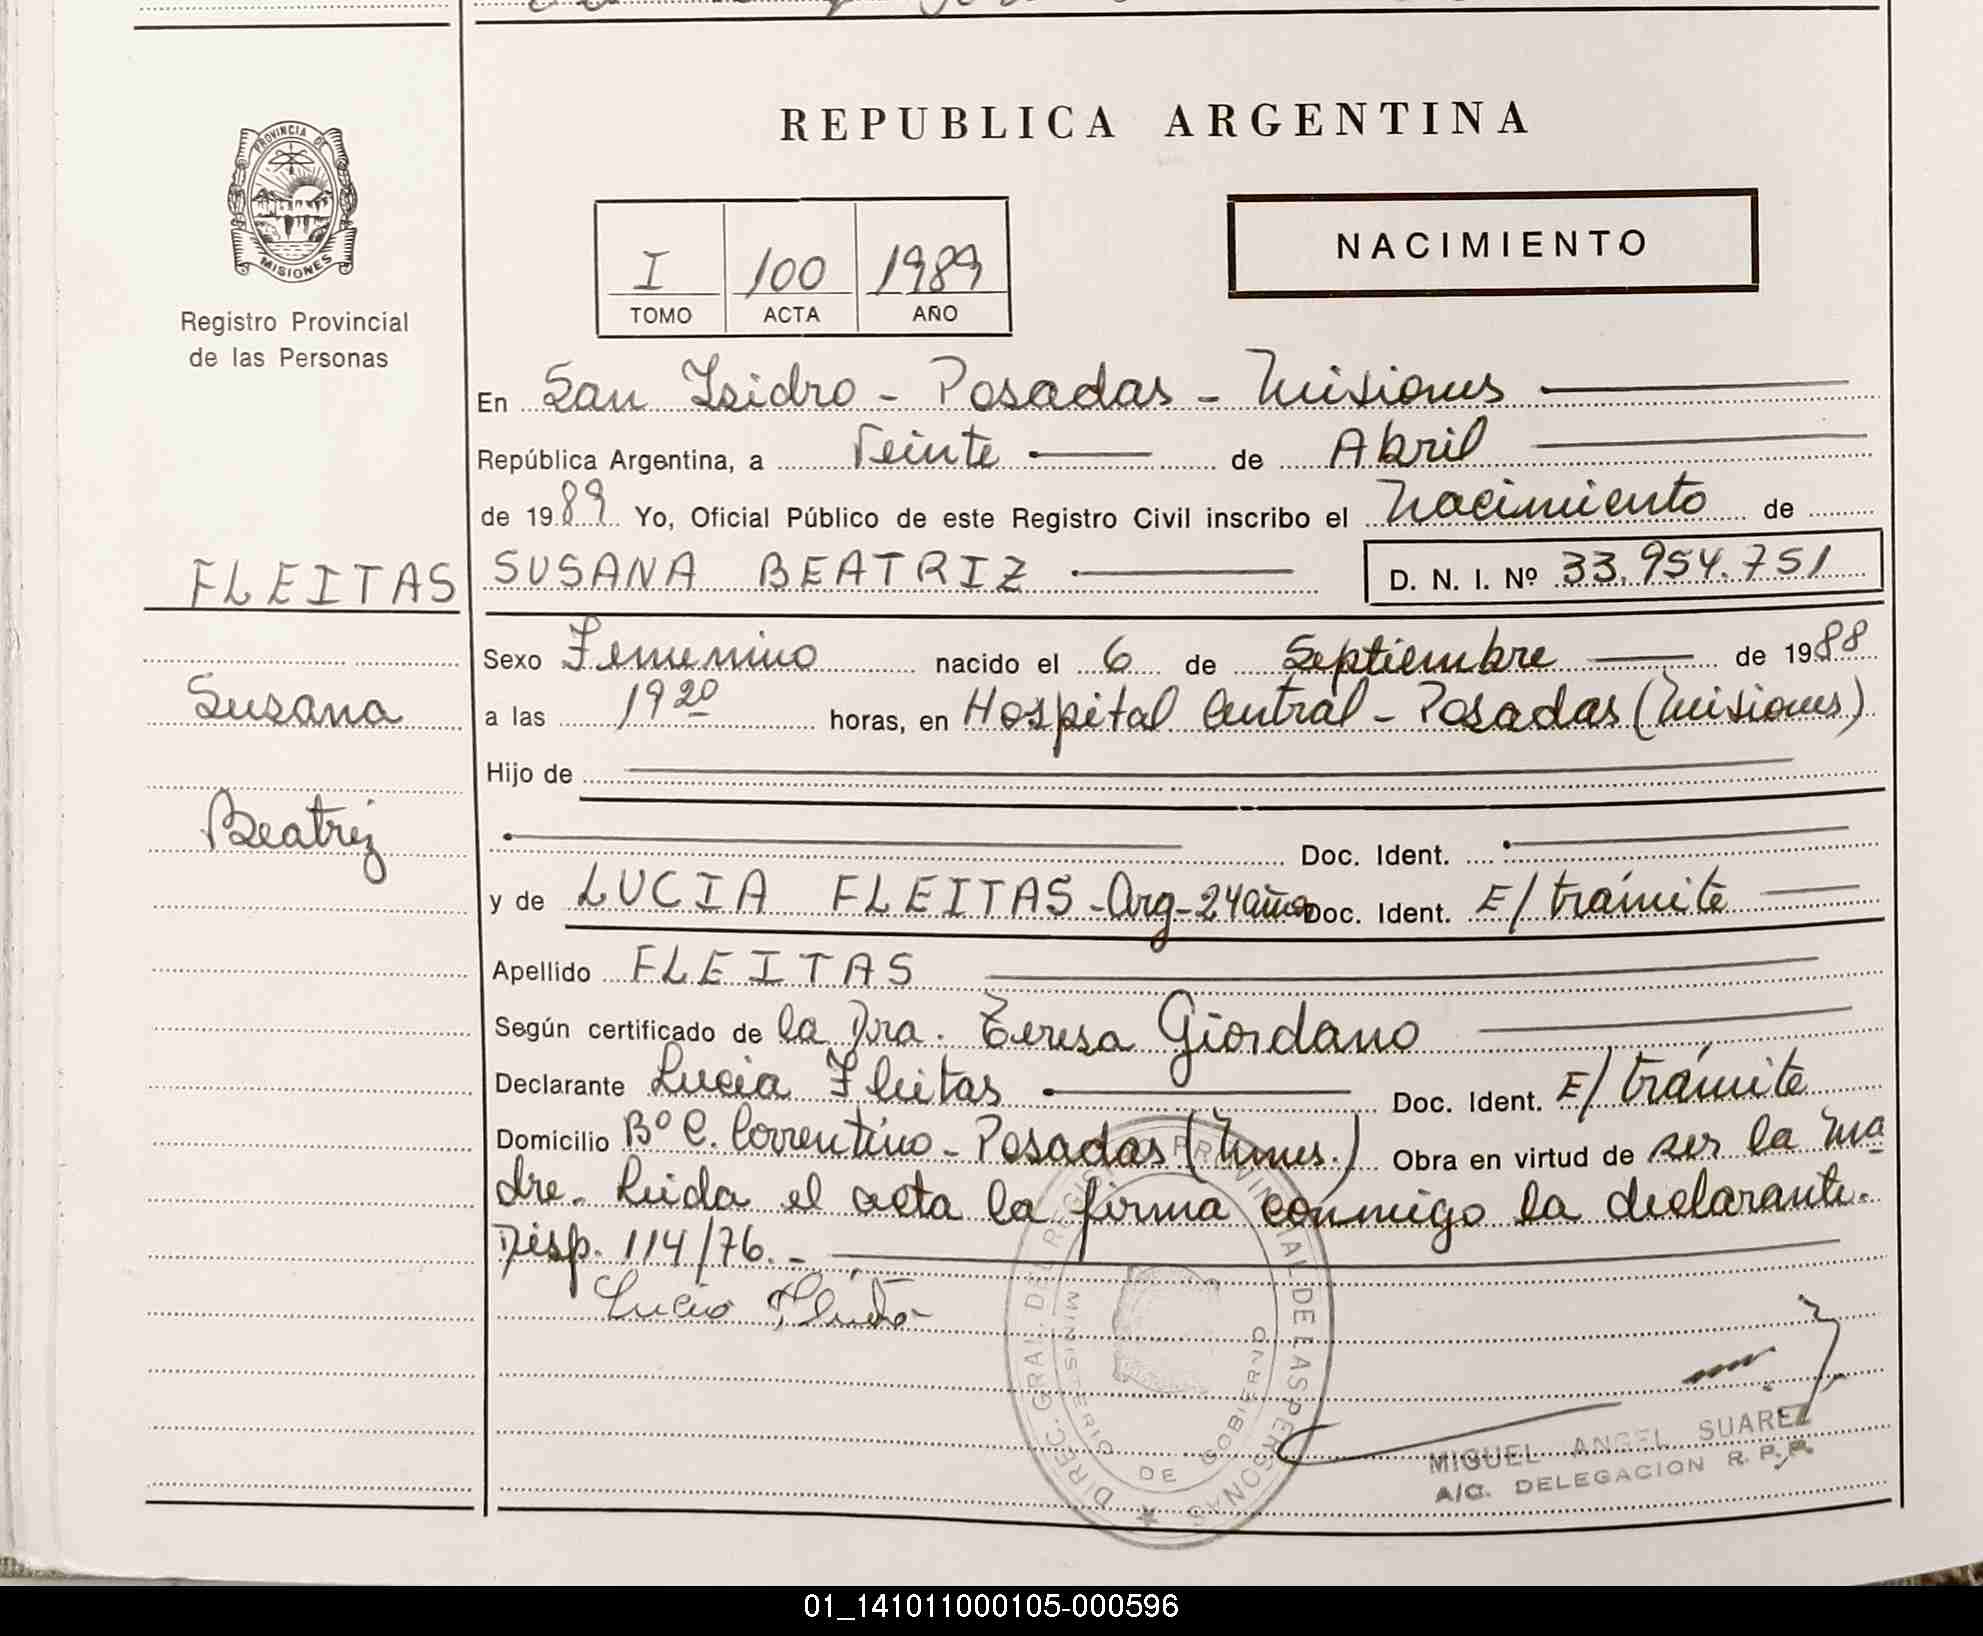 REPUBLICA ARGENTINA
PROVINCIA DE MISIONES
Registro Provincial
de las Personas
I 100 1989
TOMO ACTA AÑO
NACIMIENTO
En San Isidro - Posadas - Misiones
República Argentina, a Veinte de Abril
de 1989 Yo, Oficial Público de este Registro Civil inscribo el Nacimiento de
FLEITAS SUSANA BEATRIZ D. N. I. Nº 33.954.751
Sexo Femenino nacido el 6 de Septiembre de 1988
Susana
a las 19 20 horas, en Hospital Central - Posadas (Misiones)
Hijo de
Beatriz
Doc. Ident.
y de LUCIA FLEITAS - Arg - 24 años Doc. Ident. E/ trámite
Apellido FLEITAS
Según certificado de la Dra. Teresa Giordano
Declarante Lucia Fleitas Doc. Ident. E/ trámite
Domicilio Bº C. Correntino - Posadas (Mnes.) Obra en virtud de ser la ma
dre. Leida el acta la firma conmigo la declarante.
Disp. 114/76. -
Lucia Fleitas
DIREC. GRAL. DEL REGISTRO PROVINCIAL DE LAS PERSONAS
MINISTERIO DE GOBIERNO
MIGUEL ANGEL SUAREZ
A/C. DELEGACION R. P. P.
01_141011000105-000596